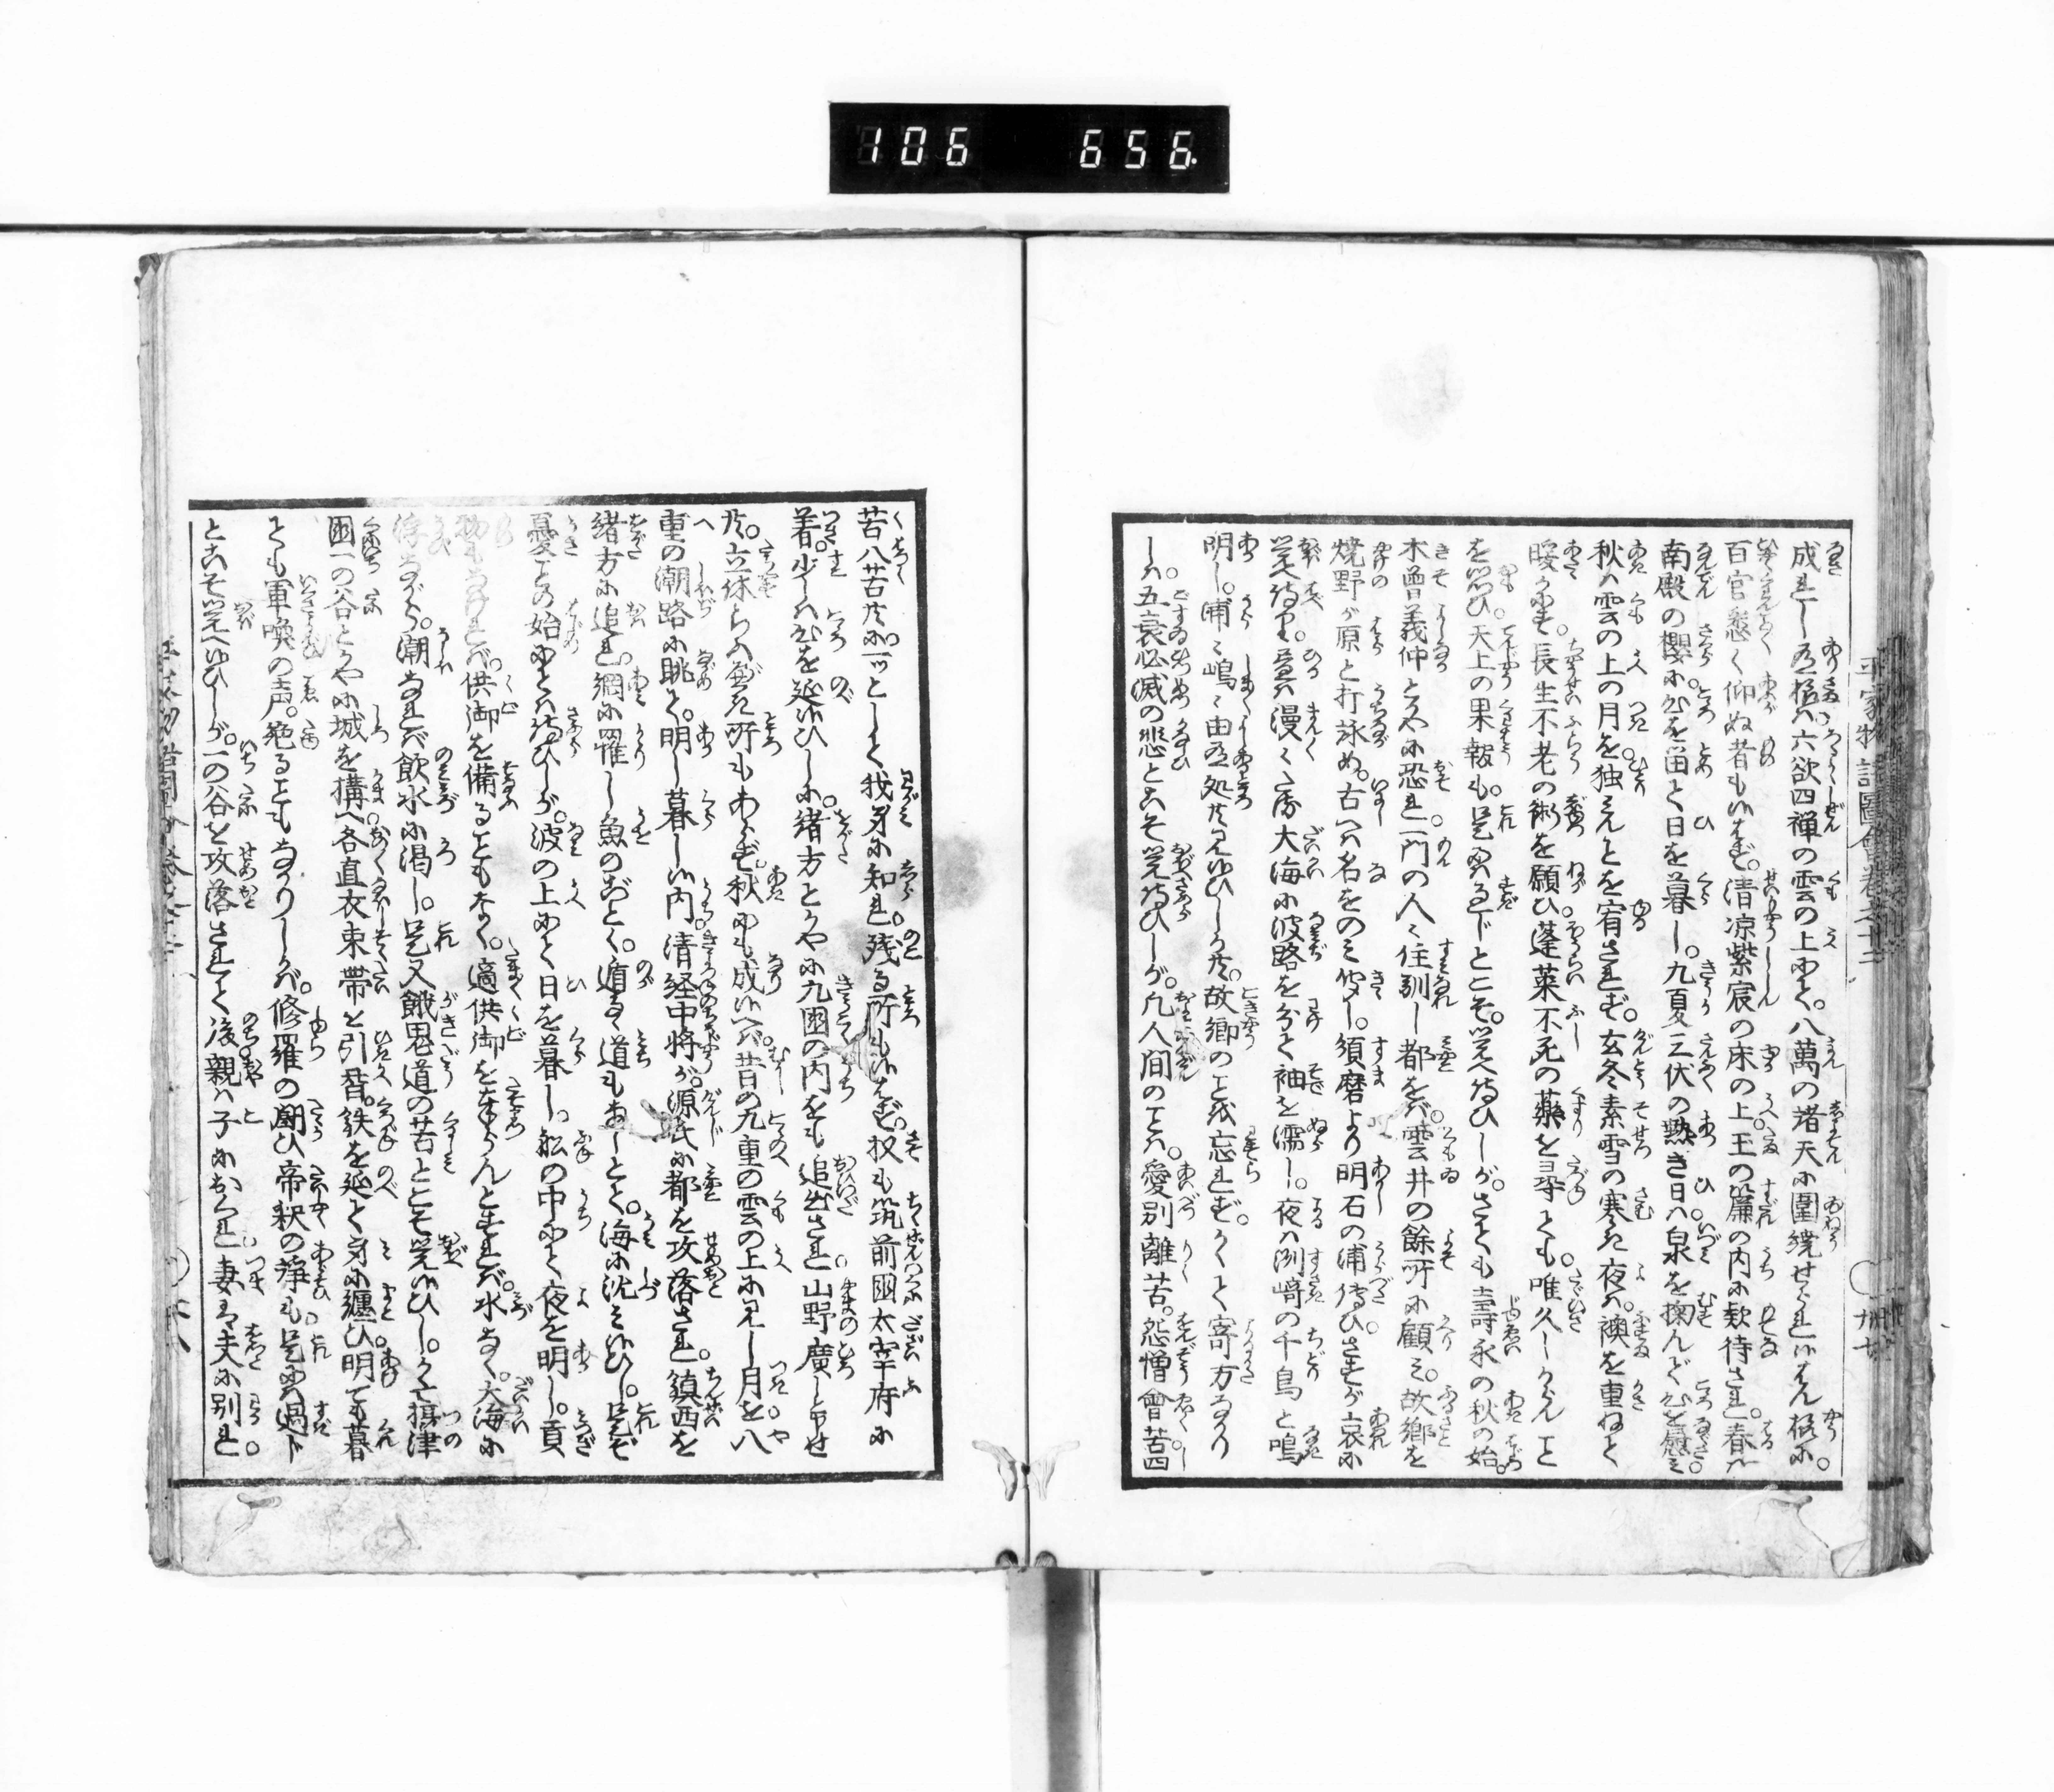 106 656.
平家物語圖會巻之十二
成れし有様は六欲四禅の雲の上にて。八萬の諸天に圍繞せられ候はん様に。
百官悉く仰ぬ者も候はず。清凉紫宸の床の上玉の簾の内に款待され。春は
南殿の櫻に心を留て日を暮し。九夏三伏の熱き日は泉を掬んで心を慰ミ
秋は雲の上の月を独ミんとを宥されず。玄冬素雪の寒き夜は。襖を重ねて
暖かにす。長生不老の術を願ひ蓬莱不死の薬を尋ても。唯久しからんこと
を思ひ。天上の果報も。是にはるじとこそ。覚へ侍ひしが。さても壽永の秋の始。
木曽義仲とやに恐れ。一門の人々住馴し都をバ。雲井の餘所に顧ミ。故郷を
焼野が原と打詠め。古へは名をのミ聞し。須磨より明石の浦傳ひさすが哀に
覚へ侍り。昼は漫々たる大海に波路を分て袖を濡し。夜は洲崎の千鳥と鳴
明し。浦々嶋々由有処は見ゆひしかども。故郷のこと忘れず。かくて寄方なかり
しは。五衰必滅の悲とこそ覚侍ひしが。凡人間のことは。愛別離苦。怨憎會苦四
苦八苦共に一ツとして我身に知れ。残る所も候はず。扨も筑前國太宰府に
着。少しは心を延ゆひしに。緒方とかやに九國の内をも追出され。山野廣しと申せ
共。立休らふべき所もあらず。秋にも成ゆへバ。昔の九重の雲の上に見し月を。八
重の潮路に眺て。明し暮しゆ内。清経中将が。源氏に都を攻落され。鎮西を
緒方に追れ。網に罹し魚のごとく。遁る道もあしとて。海に沈ミゆひし。是ぞ
憂ことの始にとは侍ひしが。波の上にて日を暮し。舩の中にて夜を明し。貢
物もなけれバ。供御を備ることもなく。適供御を奉らんとすれバ。水なく。大海に
浮ながら。潮なれバ飲水に渇し。是又餓鬼道の苦とこそ覚ゆひし。かくて摂津
國一の谷とかやに城を構へ各直衣束帯を引替。鉄を延て身に纏ひ。明ても暮
ても軍喚の声。絶ることもなかりしかバ。修羅の闘ひ帝釈の諍も。是には過じ
とこそ覚へゆひしが。一の谷を攻落されて後親は子におくれ。妻は夫に別れ。